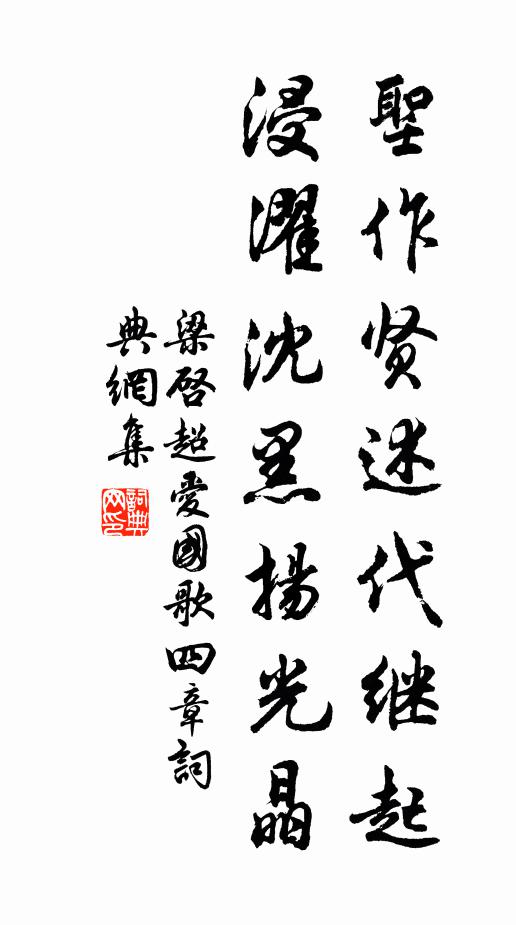 聖作贤述代继起
浸濯沈黑揚光晶
梁啓超愛國歌四章詞
典網集
詞典
网印